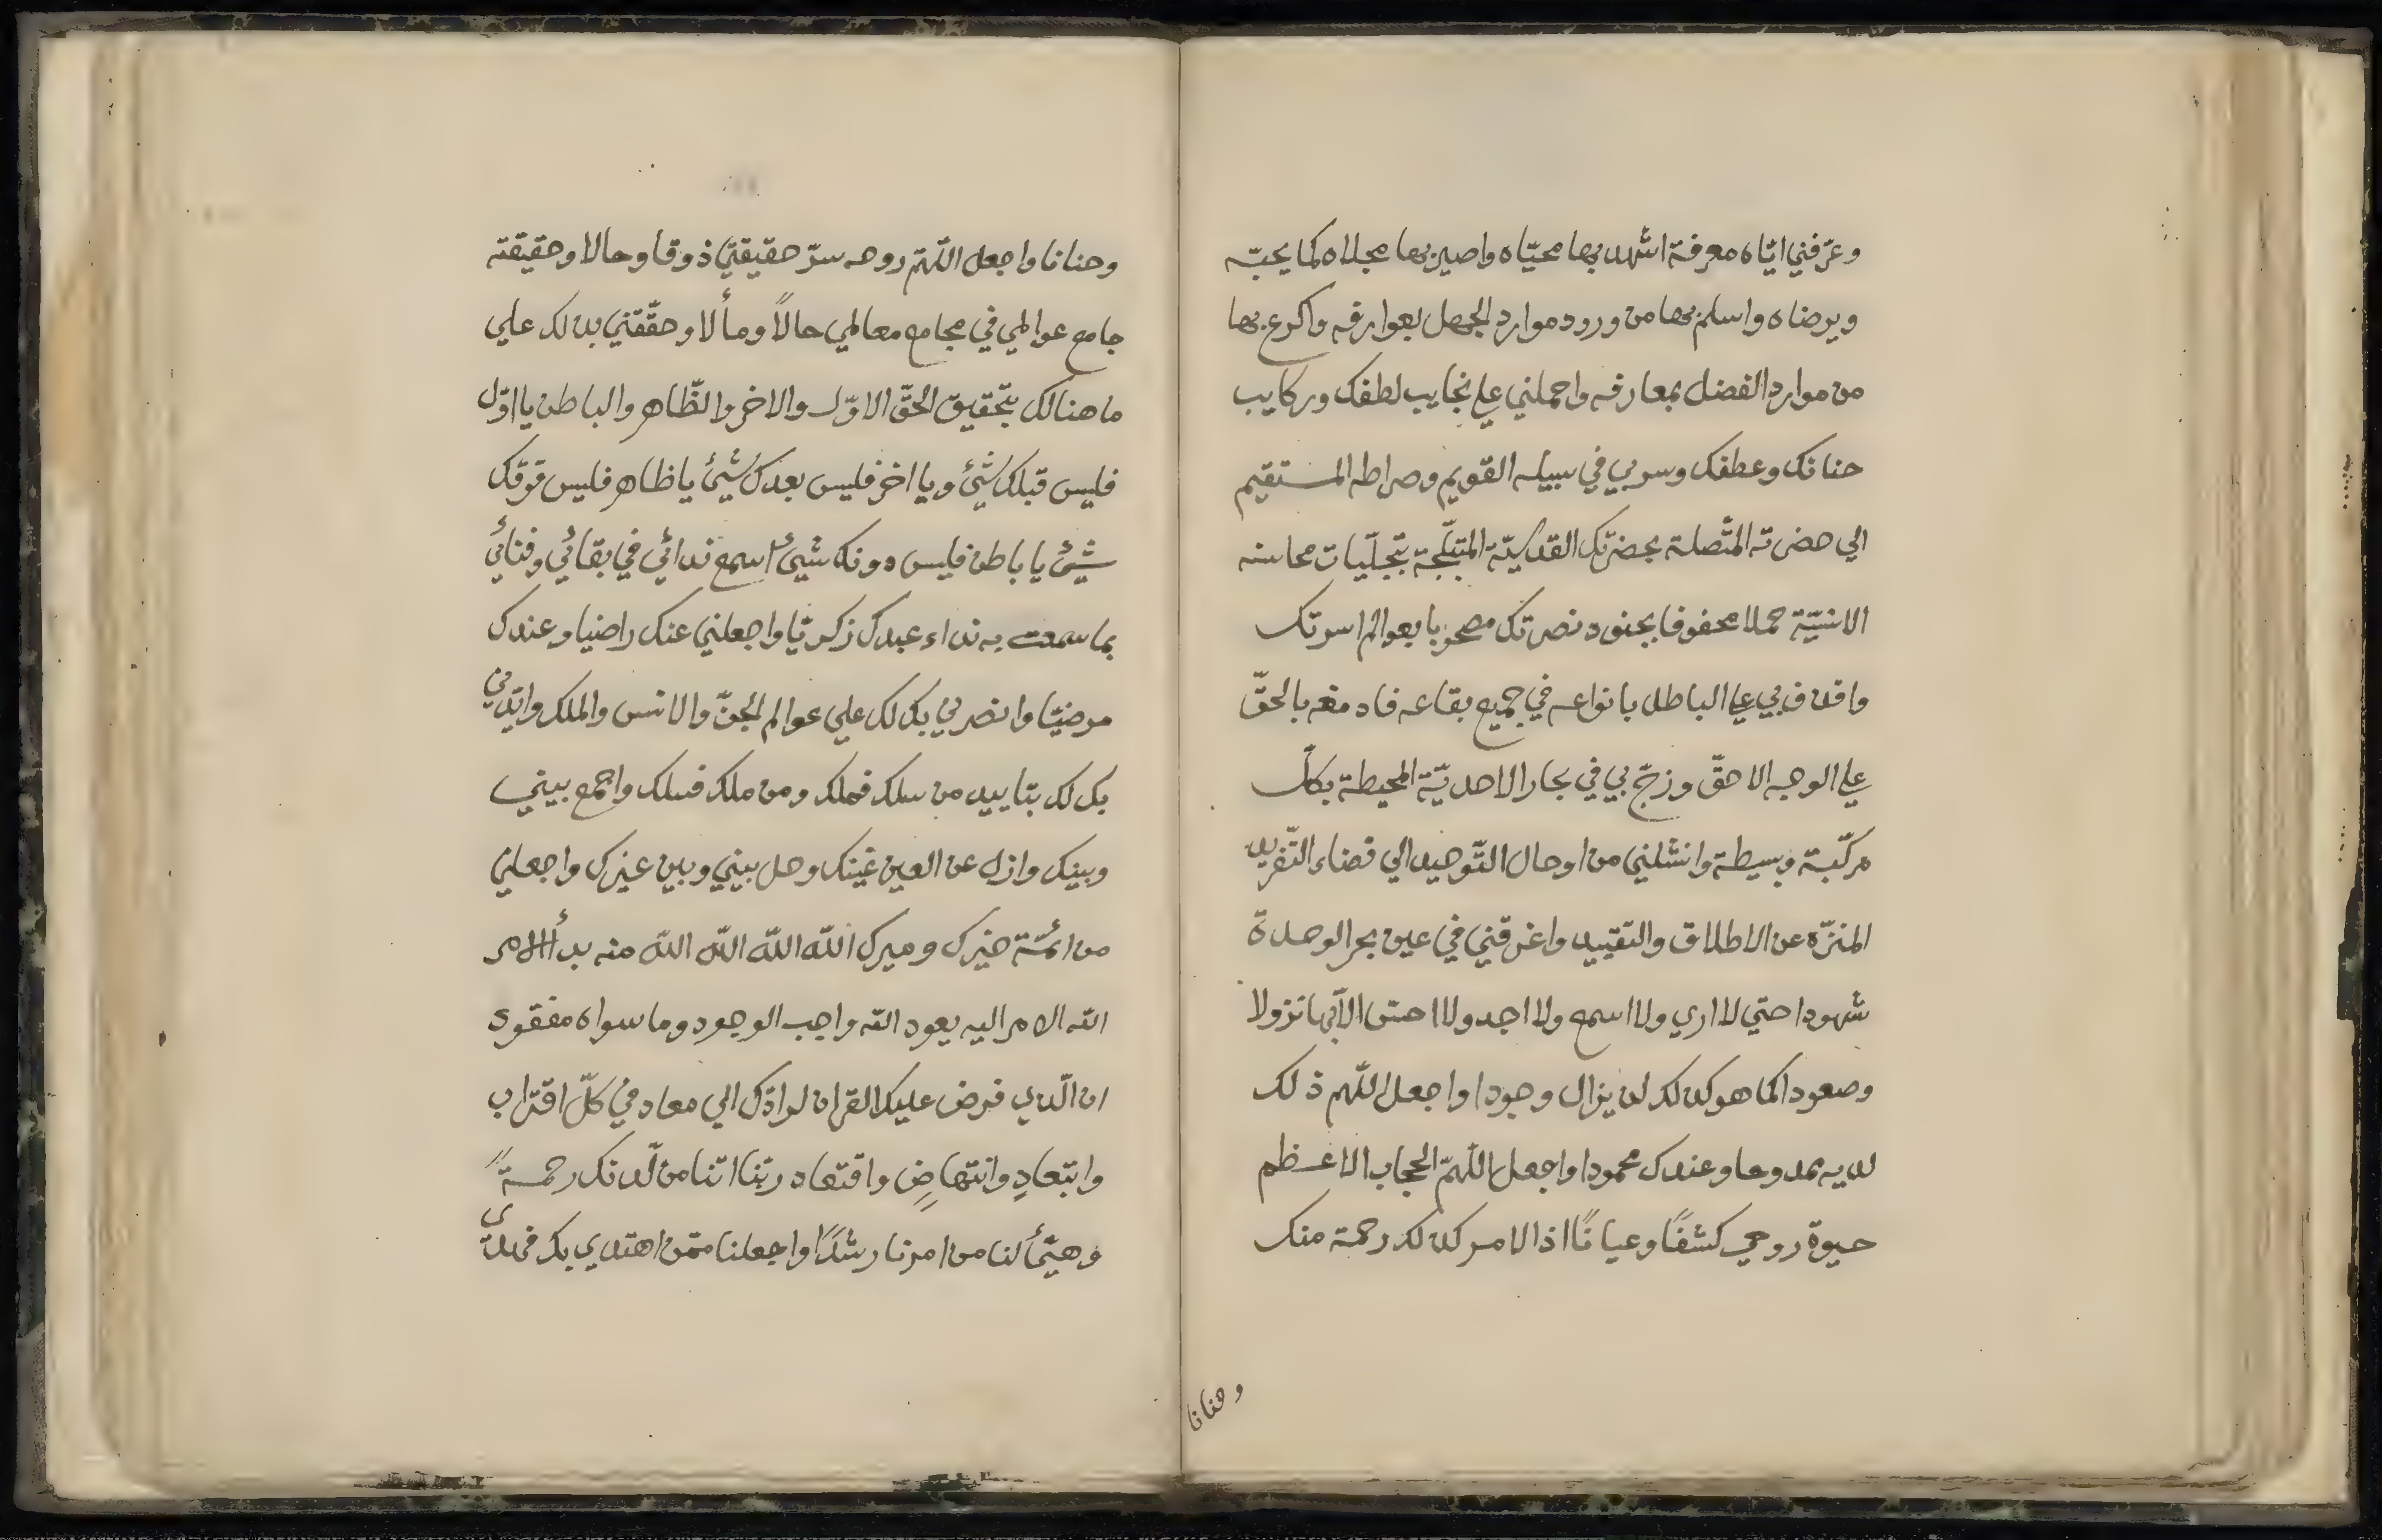 وعرّفني ايّاه معرفة اشهد بها محيّاه واصير بها مجلاه كما يحبّه
ويرضاه واسلم بها من ورود موارد الجهل بعوارفه واكرع بها
من موارد الفضل بمعارفه واحملني علي نجايب لطفك وركايب
حنانك وعطفك وسر بي في سبيله القويم وصراطه المستقيم
الي حضرته المتّصلة بحضرتك القدسيّة المتبلّجة بتجلّيات محاسنه
الانسيّة حملا محفوفا بجنود نصرتك مصحوبا بعوالم اسرتك
واقذف بي علي الباطل بانواعه في جميع بقاعه فادمغه بالحقّ
علي الوجه الاحقّ وزجّ بي في بحار الاحديّة المحيطة بكلّ
مركّبة وبسيطة وانشلني من اوحال التّوحيد الي فضاء التّفريد
المنزّه عن الاطلاق والتقييد واغرقني في عين بحر الوحدة
شهودا حتي لا اري ولا اسمع ولا اجد ولا احسّ الّا بها نزولا
وصعودا كما هو كذلك لن يزال وجودا واجعل اللّهم ذلك
لديه ممدوحا وعندك محمودا واجعل اللّهمّ الحجاب الاعظم
حيوة روحي كشفًا وعيانًا اذ الامر كذلك رحمة منك
وحنانا
وحنانا واجعل اللّهمّ روحه سرّ حقيقتي ذوقا وحالا وحقيقته
جامع عوالمي في مجامع معالمي حالاً ومأٓلا وحقّقني بذلك علي
ما هنالك بتحقيق الحقّ الاوّل والاخر والظّاهر والباطن يا اوّل
فليس قبلك شيئ ويا اخر فليس بعدك شيئ يا ظاهر فليس فوقك
شيئ يا باطن فليس دونك شيئ اسمع ندائي في بقائي وفنائي
بما سمعت به نداء عبدك زكريّا واجعلني عنك راضيا وعندك
مرضيّا وانصرني بك لك علي عوالم الجنّ والانس والملك وايّدني
بك لك بتاييد من سلك فملك ومن ملك فسلك واجمع بيني
وبينك وازل عن العين غينك وحل بيني وبين غيرك واجعلني
من ائمّة خيرك وميرك اللّه اللّه اللّه اللّه منه بدأ الامر
اللّه الامر اليه يعود اللّه واجب الوجود وما سواه مفقود
ان الّذي فرض عليك القران لرادّك الي معاد في كلّ اقتراب
وابتعادٍ وانتهاضٍ واقتعاد ربّنا اتنا من لّدنك رحمةً
وهيّئ لنا من امرنا رشدًا واجعلنا ممّن اهتدي بك فهدي